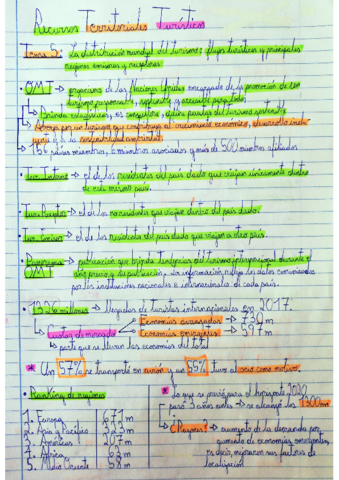 Recursos Territoriales Turísticos
Tema 5: La distribución mundial del turismo: flujos turísticos y principales
regiones emisoras y receptoras
• OMT → programa de las Naciones Unidas encargado de la promoción de un
turismo responsable, sostenible y accesible para todos.
→ Brinda estadísticas, es consultora, guía pautas del turismo sostenible
→ Aboga por un turismo que contribuya al crecimiento económico, desarrollo
y a la sostenibilidad ambiental
→ 156 países miembros, 6 miembros asociados y más de 500 miembros afiliados
• Tur. Interno → el de los residentes del país dado que viajan únicamente dentro
de este mismo país.
• Tur. Receptor → el de los no residentes que viajan dentro del país dado.
• Tur. Emisor → el de los residentes del país dado que viajan a otro país.
• Panorama → publicación que brinda tendencias del turismo internacional durante el
OMT año previo a su publicación. La información refleja los datos comunicados
por las instituciones nacionales e internacionales de cada país.
• 1326 millones → llegadas de turistas internacionales en 2017.
→ Cuotas de mercado → Economías avanzadas → 730 m
→ Economías emergentes → 597 m
↳ parte que se llevan las economías del total
* Un 57% se transportó en avión y un 55% tuvo al ocio como motivo.
• Ranking de regiones
1. Europa 671 m
2. Asia y Pacífico 323 m
3. Américas 207 m
4. África 63 m
5. Medio Oriente 58 m
* Lo que se preveía para el horizonte 2020
pasó 3 años antes → se alcanzó los 1300 m
¿Razones? → aumento de la demanda por
aumento de economías emergentes,
es decir, mejoraron sus factores de
localización